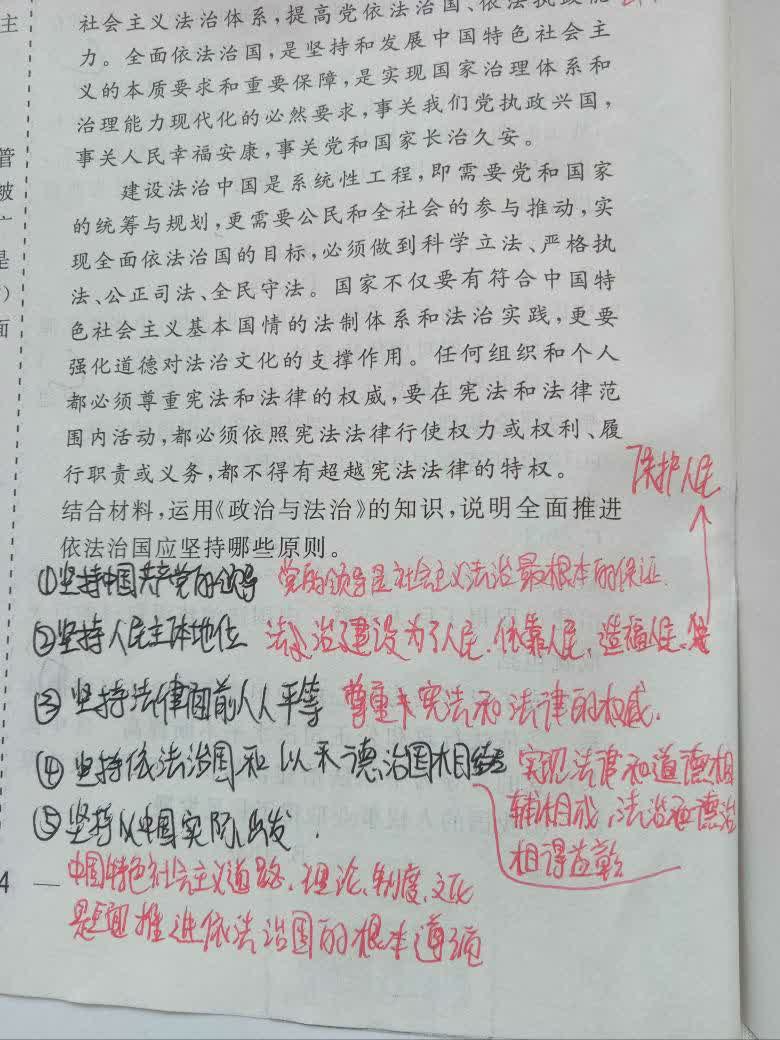 主
管
被
是
)
面
社会主义法治体系,提高党依法治国、依法执政能
力。全面依法治国,是坚持和发展中国特色社会主
义的本质要求和重要保障,是实现国家治理体系和
治理能力现代化的必然要求,事关我们党执政兴国,
事关人民幸福安康,事关党和国家长治久安。
建设法治中国是系统性工程,即需要党和国家
的统筹与规划,更需要公民和全社会的参与推动,实
现全面依法治国的目标,必须做到科学立法、严格执
法、公正司法、全民守法。国家不仅要有符合中国特
色社会主义基本国情的法制体系和法治实践,更要
强化道德对法治文化的支撑作用。任何组织和个人
都必须尊重宪法和法律的权威,要在宪法和法律范
围内活动,都必须依照宪法法律行使权力或权利、履
行职责或义务,都不得有超越宪法法律的特权。
保护人民
结合材料,运用《政治与法治》的知识,说明全面推进
依法治国应坚持哪些原则。
①坚持中国共产党的领导 党的领导是社会主义法治最根本的保证.
②坚持人民主体地位 法治建设为了人民.依靠人民,造福人民.
③坚持法律面前人人平等 尊重宪法和法律的权威.
④坚持依法治国和以德治国相结合 实现法律和道德相
辅相成,法治和德治
相得益彰
⑤坚持从中国实际出发.
4
中国特色社会主义道路.理论.制度.文化
是全面推进依法治国的根本遵循